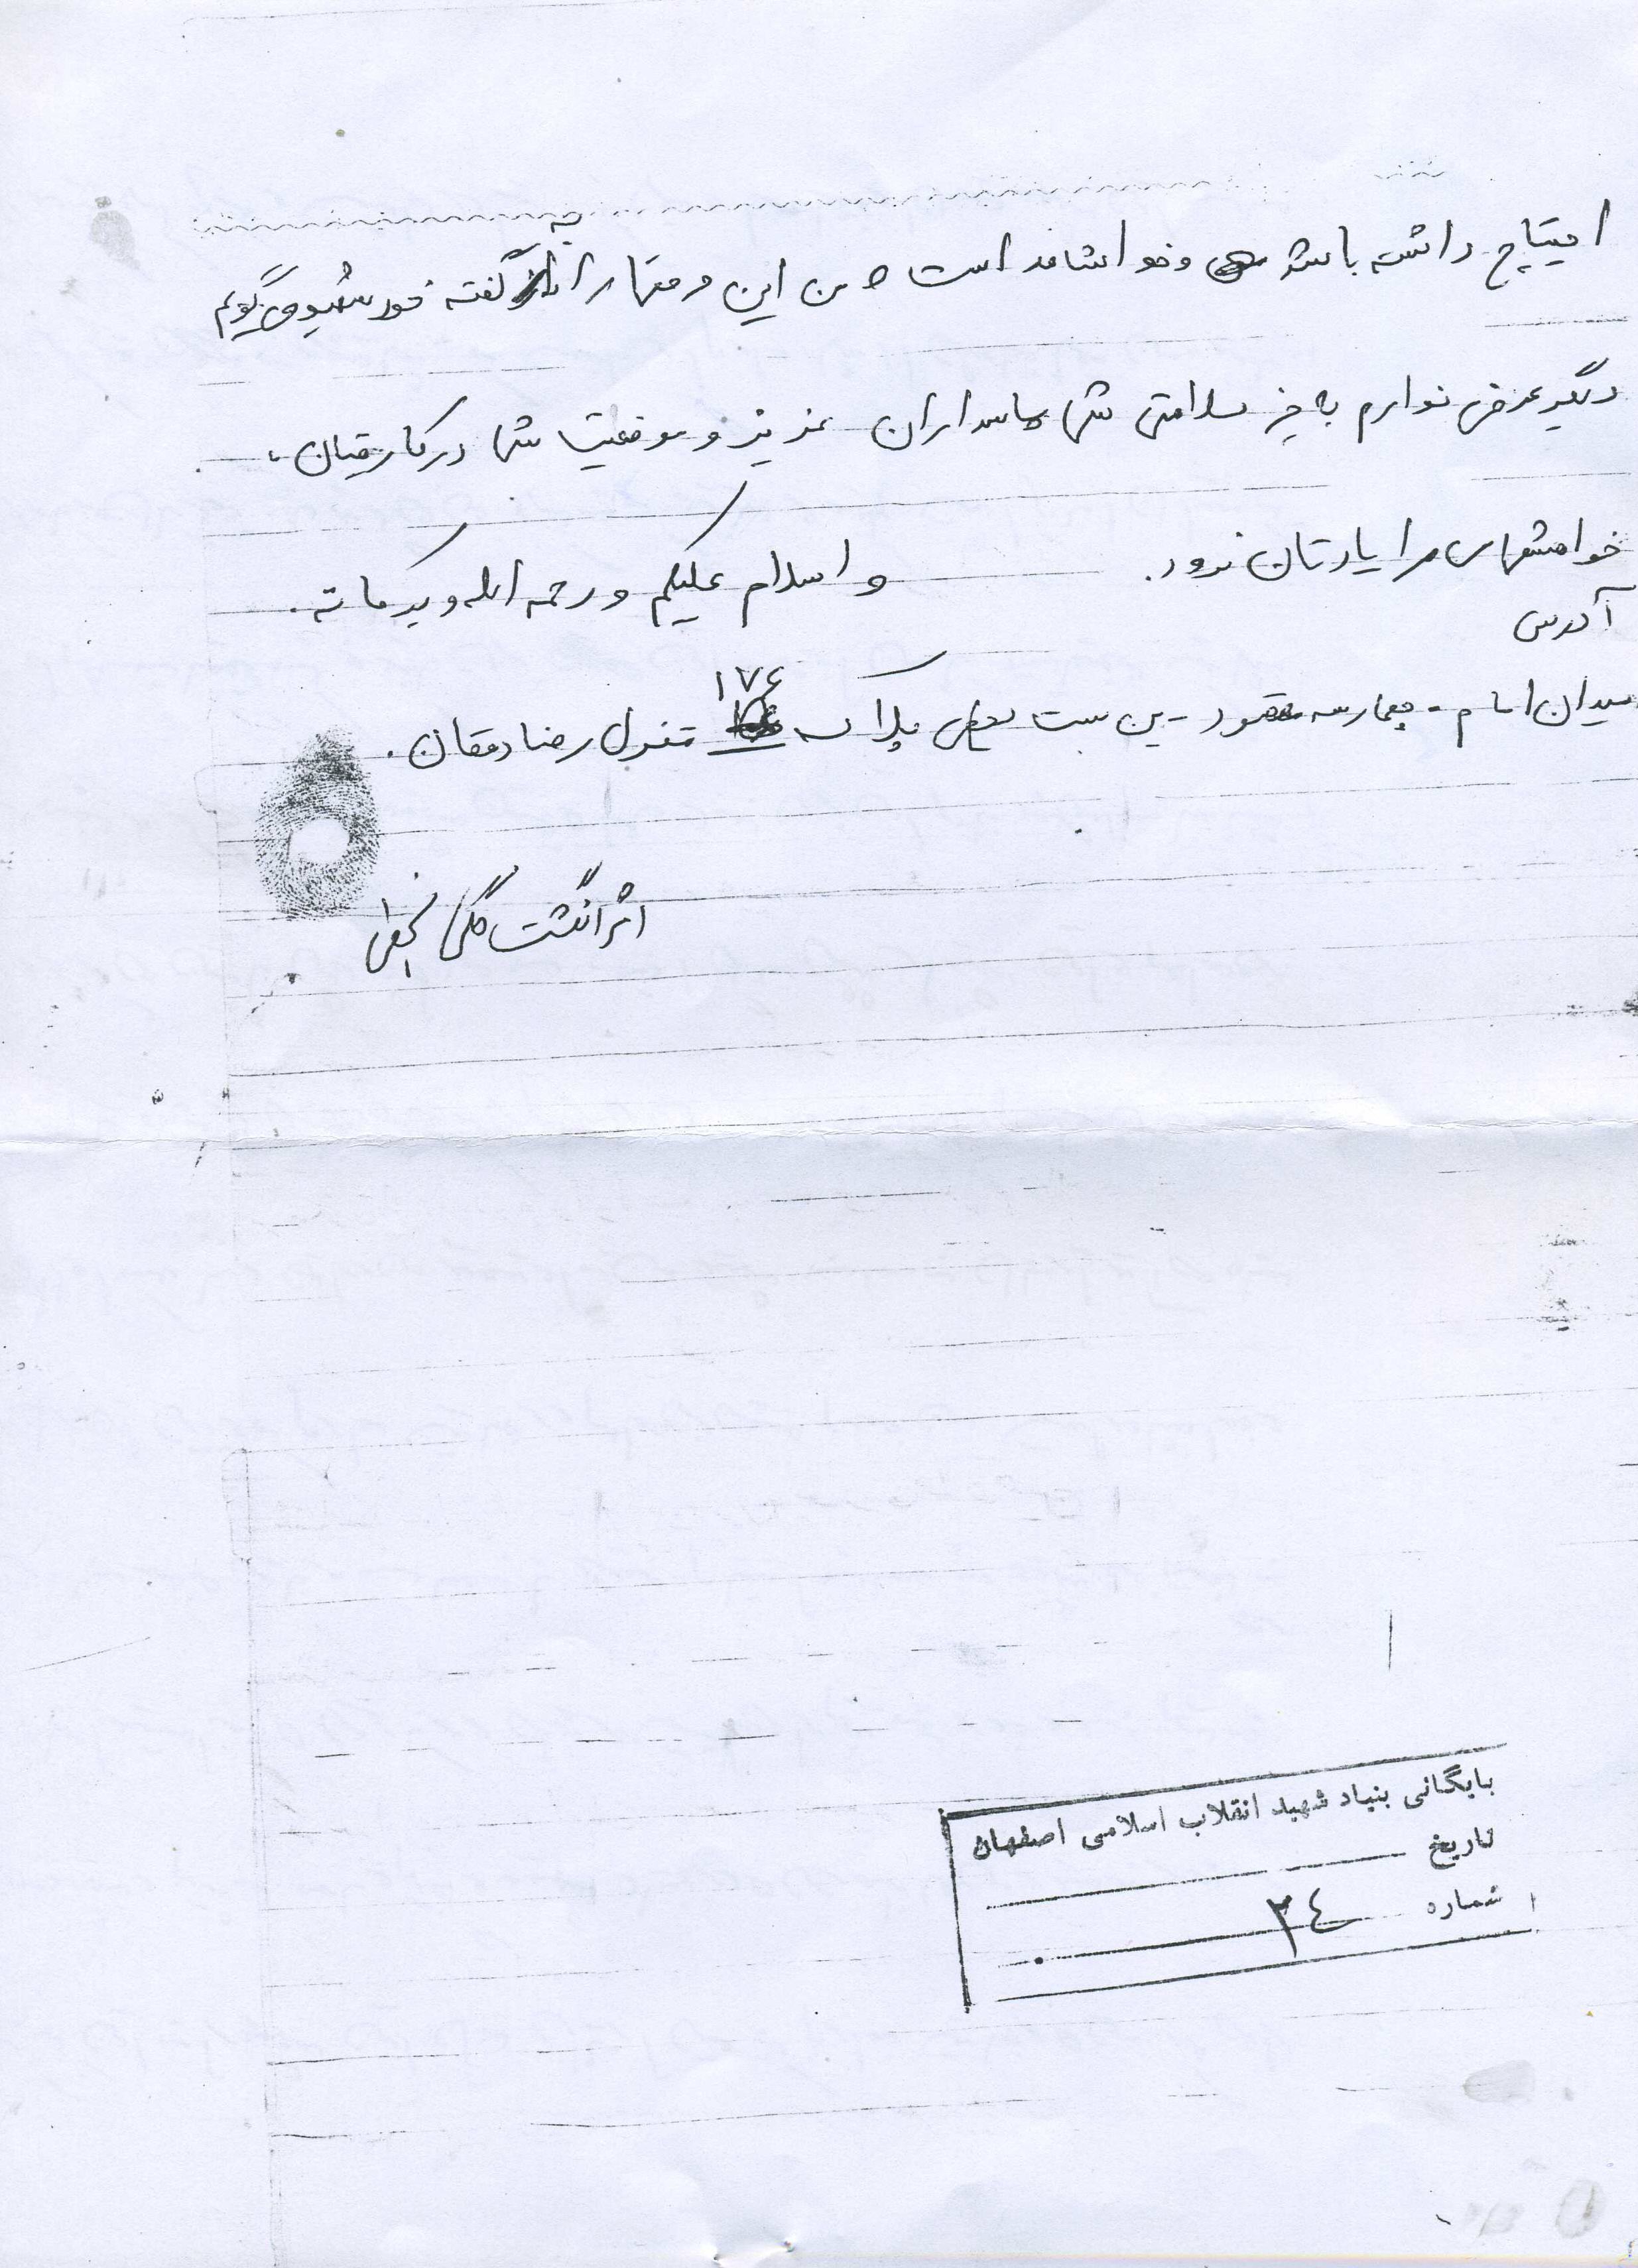 احتیاج داشته باشد و خواهشمند است من این حرفها را به گفته خود شهید می‌گویم
دیگر عرضی ندارم به جز سلامتی شما پاسداران عزیز و موفقیت شما در کارهیتان.
خواهشهای مرا یادتان نرود. واسلام علیکم و رحمه الله و برکاته.
آدرس
میدان امام - چهارسه مقصود - بن بست پلاک ۱۷۶ منزل رضا دهقان.
اثر انگشت گلی نجفی
بایگانی بنیاد شهید انقلاب اسلامی اصفهان
تاریخ
شماره ۲٤